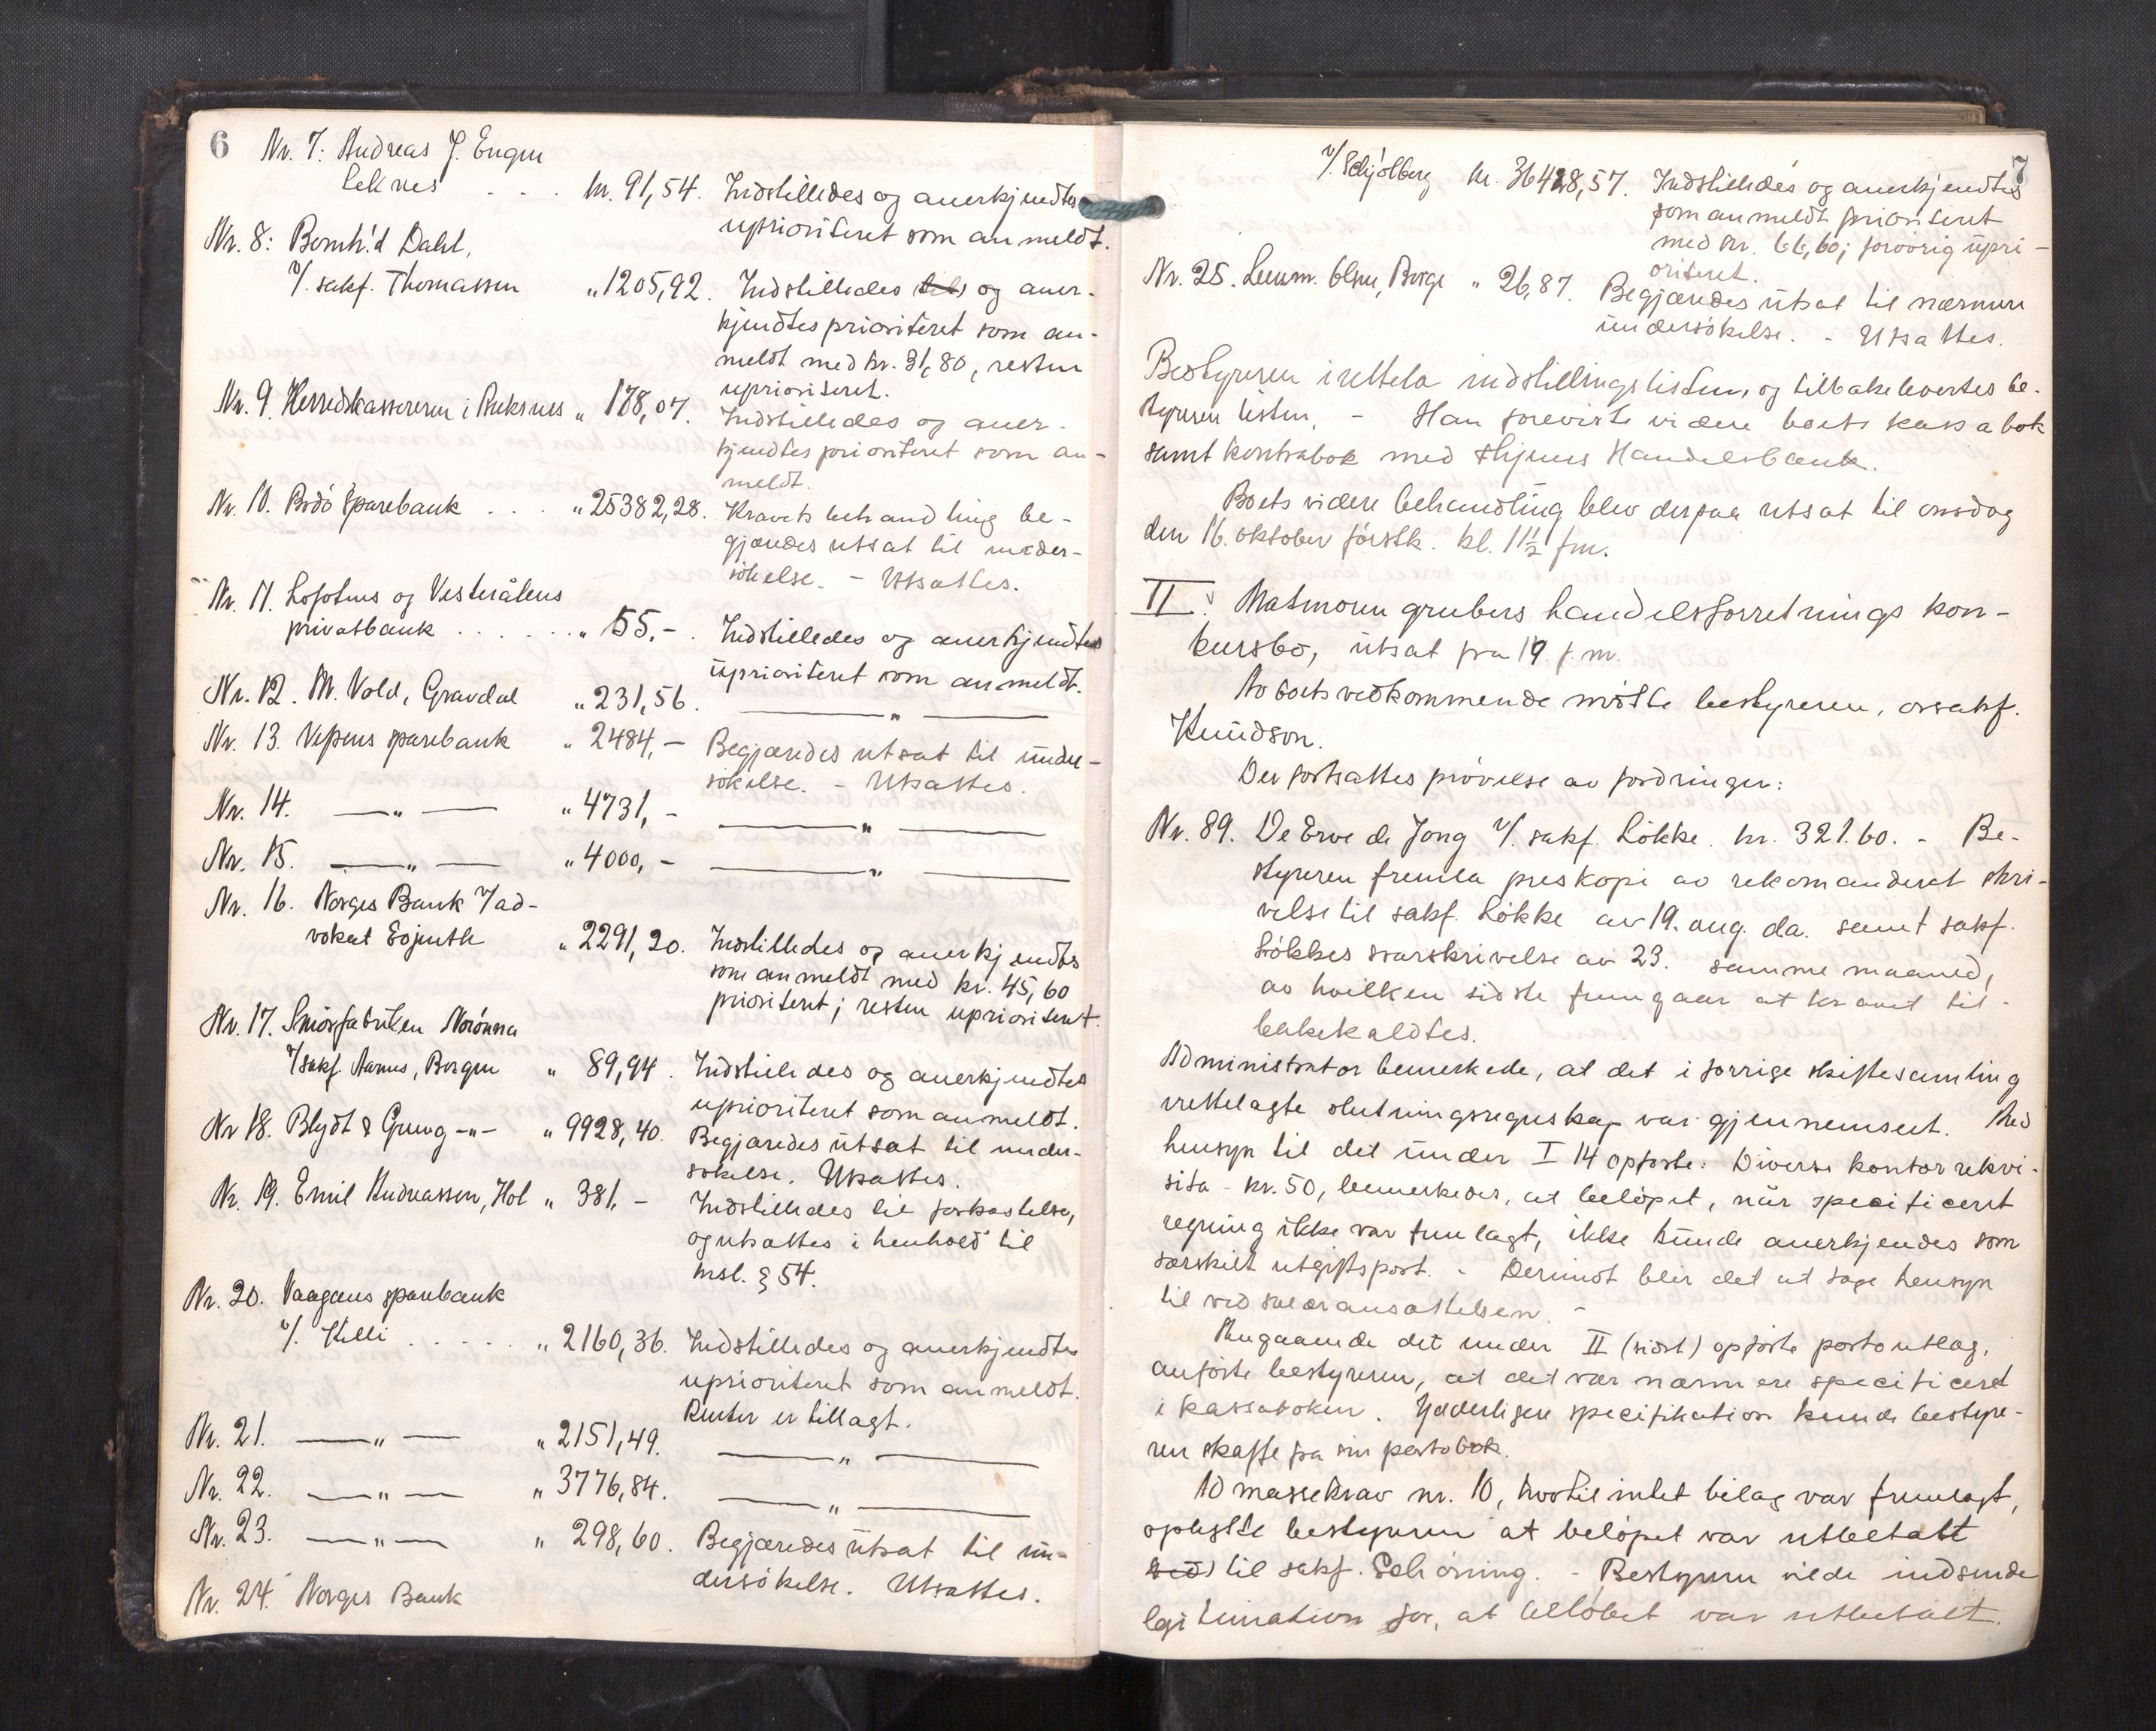 6
Nr. 7: Andreas J. Engen
Leknes . . . kr. 91,54. Indstilledes og anerkjendtes
uprioriteret som anmeldt.
Nr. 8: Bernh. Dahl,
v/ sakf. Thomassen „ 1205,92. Indstilledes og aner-
kjendtes prioriteret som an-
meldt med kr. 31,80, resten
uprioriteret.
Nr. 9. Herredskassereren i Buksnes „ 178,07. Indstilledes og aner-
kjendtes prioriteret som an-
meldt.
Nr. 10. Bodö Sparebank . . . „ 25382,28. Kravets behandling be-
gjæredes utsat til under-
sökelse. - Utsattes.
Nr. 11. Lofotens og Vesterålens
privatbank . . . . . . „ 55,-. Indstilledes og anerkjendtes
uprioriteret som anmeldt.
Nr. 12. M. Vold, Gravdal „ 231,56. — „ —
Nr. 13. Vefsens sparebank „ 2484,- Begjæredes utsat til under-
sökelse. - Utsattes.
Nr. 14. — „ — „ 4731,- — „ —
Nr. 15. — „ — „ 4000,- — „ —
Nr. 16. Norges Bank v/ ad-
vokat „ 2291,20. Indstilledes og anerkjendtes
som anmeldt med kr. 45,60
prioriteret; resten uprioriteret.
Nr. 17. Smörfabriken Norönna
v/ sakf. Aarnes, Bergen „ 89,94. Indstilledes og anerkjendtes
uprioriteret som anmeldt.
Nr. 18. Blydt & Grung -„- „ 9928,40. Begjæredes utsat til under-
sökelse. Utsattes.
Nr. 19. Emil Andreassen, Hol „ 381,- Indstilledes til forkastelse,
og utsattes i henhold til
krsl. § 54.
Nr. 20. Vaagans sparebank
v/ Killi . . . . . „ 2160,36. Indstilledes og anerkjendtes
uprioriteret som anmeldt.
Renter er tillagt.
Nr. 21. — „ — „ 2151,49. — „ —
Nr. 22. — „ — „ 3776,84. — „ —
Nr. 23. — „ — „ 298,60. Begjæredes utsat til un-
dersökelse. Utsattes.
Nr. 24. Norges Bank
7
v/ Schjölberg kr. 36428,57. Indstilledes og anerkjendtes
som anmeldt prioriteret
med kr. 66,60; forövrig upri-
oriteret.
Nr. 25. Lensm. Olsen, Borge „ 26,87. Begjæredes utsat til nærmere
undersökelse. - Utsattes.
Bestyreren irettela indstillingslisten, og tilbakelevertes be-
styreren listen. - Han foreviste videre boets kassabok
samt kontrabok med Handelsbank.
Boets videre behandling blev derpaa utsat til onsdag
den 16. oktober förstk. kl. 11½ fm.
II. Matmorengrubers handelsforretnings kon-
kursbo, utsat fra 19. f.m.
Av boets vedkommende mötte bestyreren, orsakf.
Knudson.
Der fortsattes prövelse av fordringer:
Nr. 89. De Erve de Jong v/ sakf. Lökke. kr. 321.60. - Be-
styreren fremla preskopi av rekomanderet skri-
velse til sakf. Lökke av 19. aug. da. samt sakf.
Lökkes svarskrivelse av 23. samme maaned,
av hvilken sidste fremgaar at kravet til-
bakekaldtes.
Administrator bemerkede, at det i forrige skiftesamling
irettelagte slutningsregnskap var gjennemseet. Med
hensyn til det under I 14 opförte: Diverse kontorrekvi-
sita - kr. 50, bemerkedes, at belöpet, når specificeret
regning ikke var fremlagt, ikke kunde anerkjendes som
særskilt utgiftspost. - Derimot blir det at tage hensyn
til ved salæransættelsen. -
Angaaende det under II (sidst) opförte portoutlæg,
anförte bestyreren, at det var nærmere specificeret
i kassaboken. Yderligere specifikation kunde bestyre-
ren skaffe fra sin portobok.
Ad massekrav nr. 10, hvortil intet bilag var fremlagt,
oplyste bestyreren at belöpet var utbetalt
til sakf. Schöning. - Bestyreren vilde indsende
legitimation for, at belöbet var utbetalt.